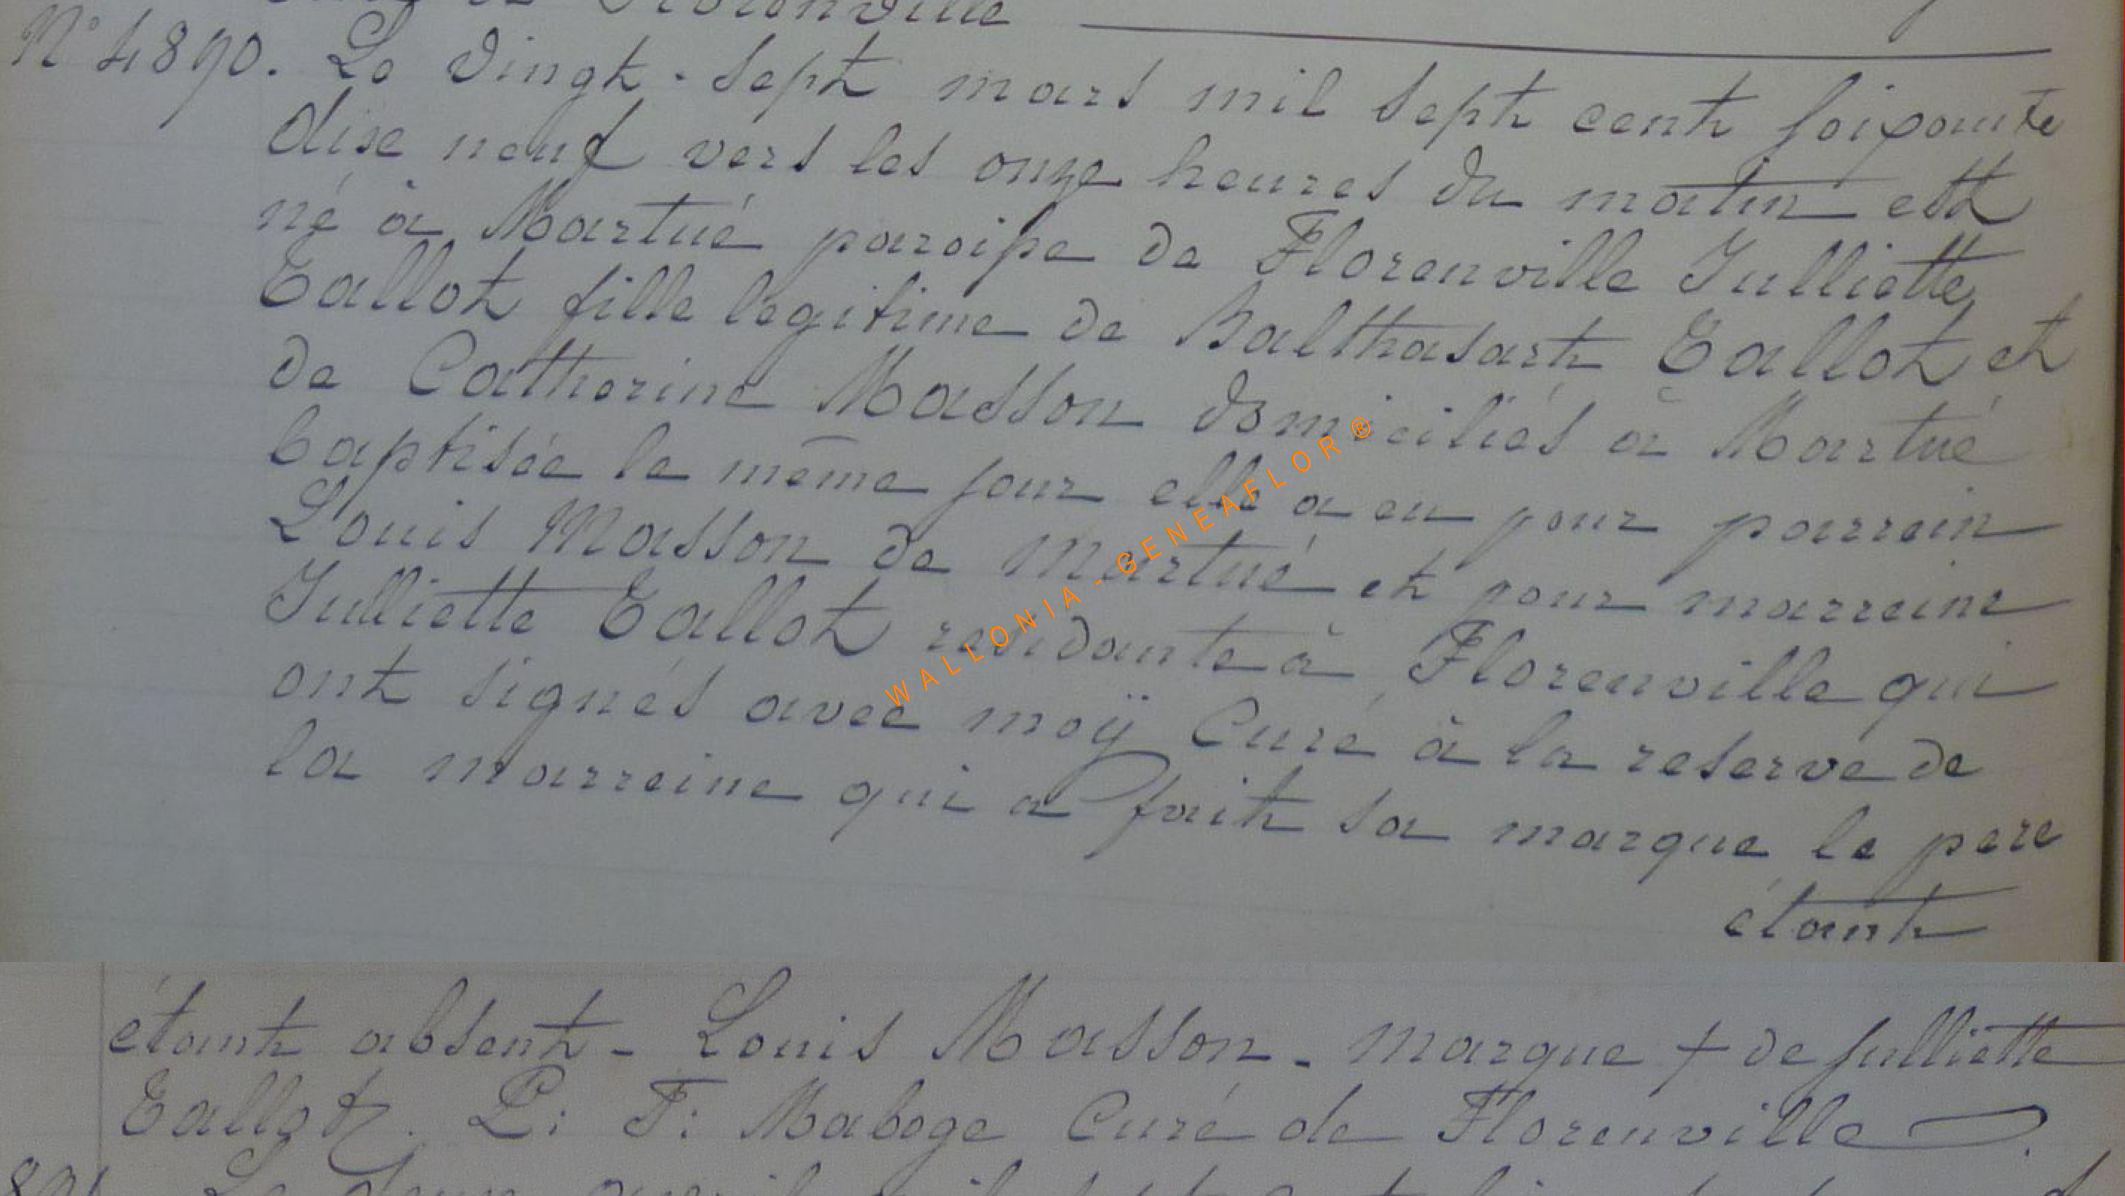 Florenville
N° 4890. Le vingt-sept mars mil sept cent soixante
dixe neuf vers les onze heures du matin est
né à Martué paroisse de Florenville Julliette
Tallot fille legitime de Balthasart Tallot et
de Catherine Masson domiciliés à Martué
baptisée le même jour elle a eu pour parrein
Louis Masson de Martué et pour marreine
Julliette Tallot residante à Florenville qui
ont signés avec moÿ Curé à la reserve de
la marreine qui a fait sa marque le pere
étant
étant absent - Louis Masson - marque + de Julliette
Tallot. L: F: Maboge Curé de Florenville.
WALLONIA - GENEAFLOR ®